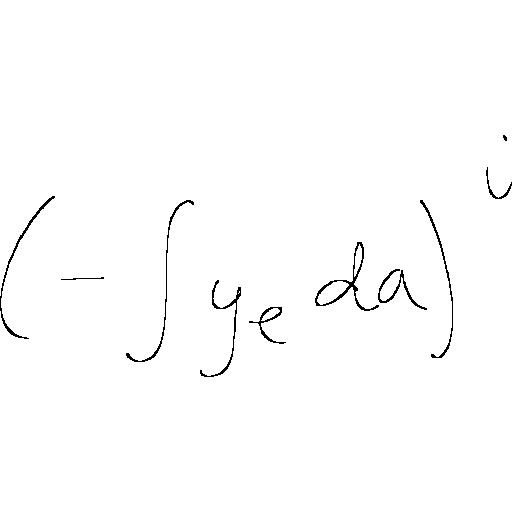 \left(-\int y_e da\right)^i